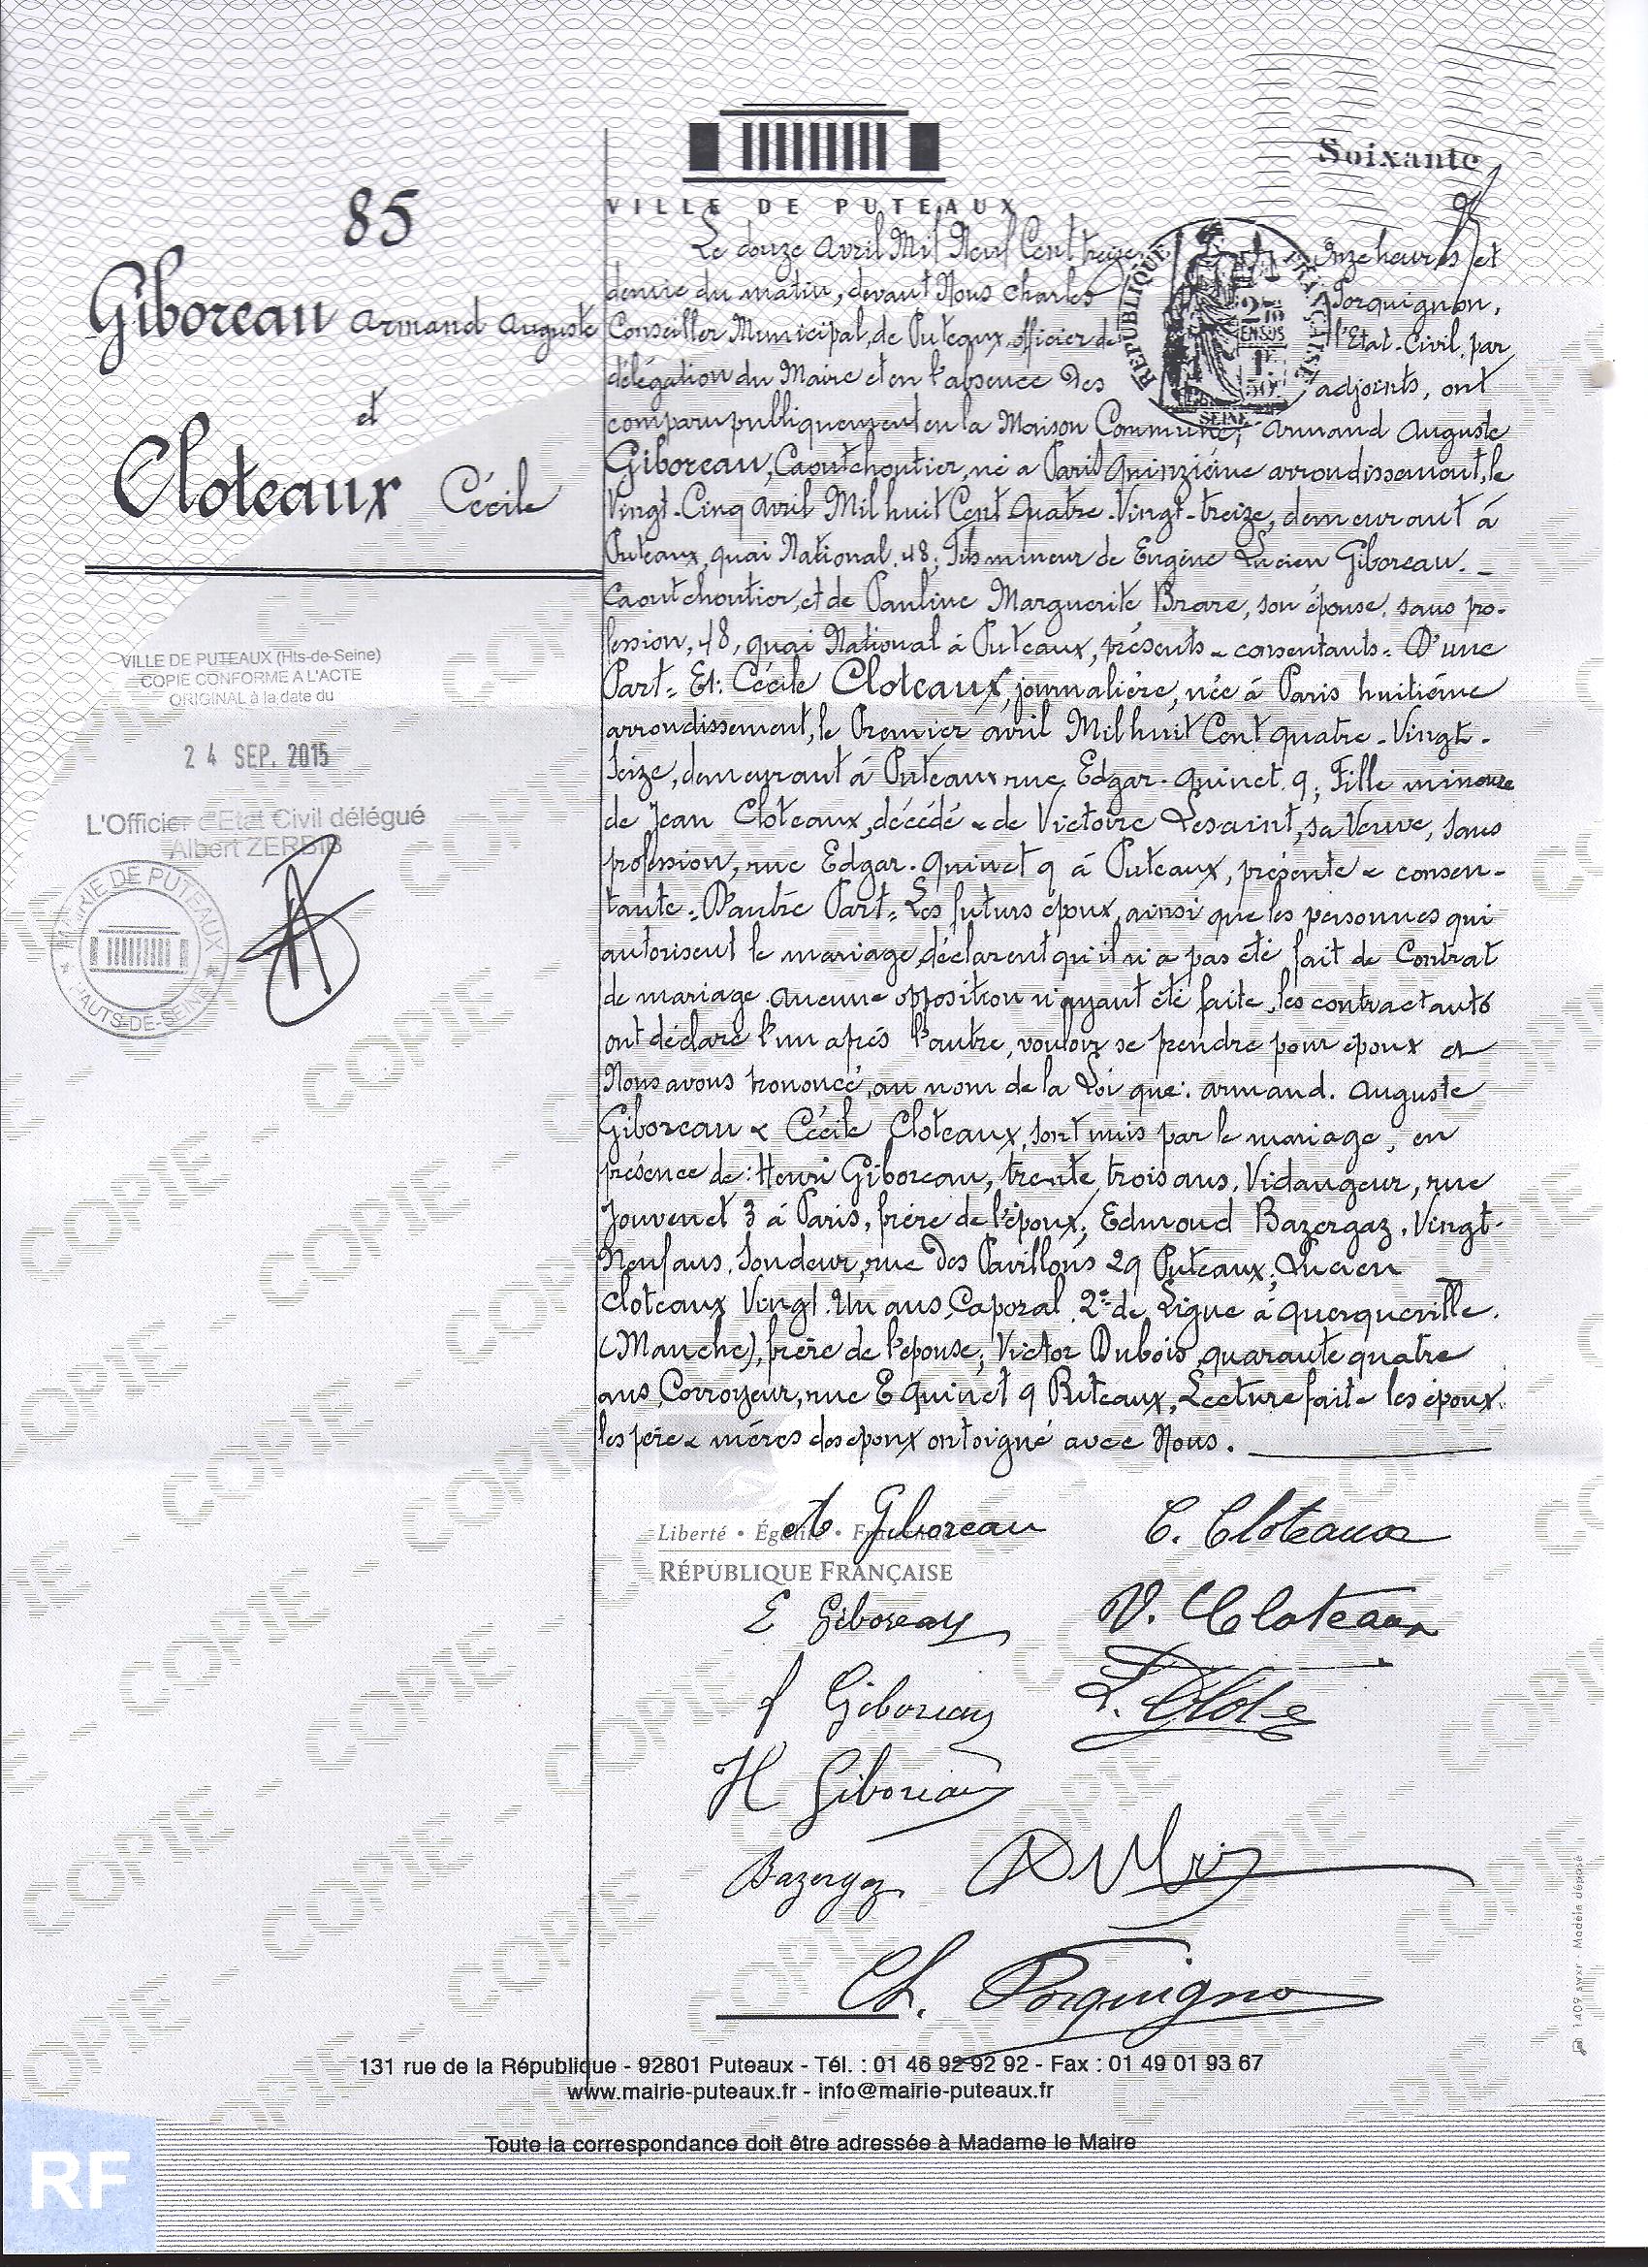 Soixante
VILLE DE PUTEAUX
85
Giboreau Armand Auguste
et
Cloteaux Cécile
VILLE DE PUTEAUX (Hts-de-Seine)
COPIE CONFORME A L'ACTE
ORIGINAL à la date du
24 SEP. 2015
L'Officier d'Etat Civil délégué
Albert ZERBIB
MAIRIE DE PUTEAUX
HAUTS-DE-SEINE
RÉPUBLIQUE FRANÇAISE
SEINE
Le douze avril Mil Neuf Cent treize, onze heures et
demie du matin, devant Nous Charles Porquignon,
Conseiller Municipal, de Puteaux, officier de l'Etat-Civil, par
délégation du Maire et en l'absence des adjoints, ont
comparu publiquement en la Maison Commune, Armand Auguste
Giboreau, Caoutchoutier, né à Paris quinzième arrondissement, le
Vingt-Cinq avril Mil huit Cent quatre-Vingt-treize, demeurant à
Puteaux, quai National, 48; Fils mineur de Eugène Lucien Giboreau. _
Caoutchoutier, et de Pauline Marguerite Brare, son épouse, sans pro-
fession, 48, quai National à Puteaux, présents & consentants = D'une
Part = Et: Cécile Cloteaux, journalière, née à Paris huitième
arrondissement, le Premier avril Mil huit Cent quatre-Vingt-
seize, demeurant à Puteaux rue Edgar-Quinet, 9; Fille mineure
de Jean Cloteaux, décédé & de Victoire Lesaint, sa Veuve, sans
profession, rue Edgar-Quinet 9 à Puteaux, présente & consen-
tante = D'autre Part = Les futurs époux, ainsi que les personnes qui
autorisent le mariage, déclarent qu'il n'a pas été fait de Contrat
de mariage. Aucune opposition n'ayant été faite, les contractants
ont déclaré l'un après l'autre, vouloir se prendre pour époux et
Nous avons prononcé, au nom de la Loi que: Armand. Auguste
Giboreau & Cécile Cloteaux, sont unis par le mariage, en
présence de: Henri Giboreau, trente trois ans, Vidangeur, rue
Jouvenet 3 à Paris, frère de l'époux; Edmond Bazergaz, Vingt-
Neuf ans, Soudeur, rue des Pavillons 29 Puteaux; Lucien
Cloteaux Vingt Un ans, Caporal 2e de Ligne à Querqueville.
(Manche), frère de l'épouse; Victor Dubois, quarante quatre
ans, Corroyeur, rue E Quinet 9 Puteaux, Lecture faite les époux,
les père & mères des époux ont signé avec Nous.
Liberté • Égalité • Fraternité
RÉPUBLIQUE FRANÇAISE
A Giboreau C. Cloteaux
E Giboreau V. Cloteaux
f Giboreau L. Clote
H Giboreau
Bazergaz Dubois
Ch. Porquignon
131 rue de la République - 92801 Puteaux - Tél. : 01 46 92 92 92 - Fax : 01 49 01 93 67
www.mairie-puteaux.fr - info@mairie-puteaux.fr
Toute la correspondance doit être adressée à Madame le Maire
RF
COPIE